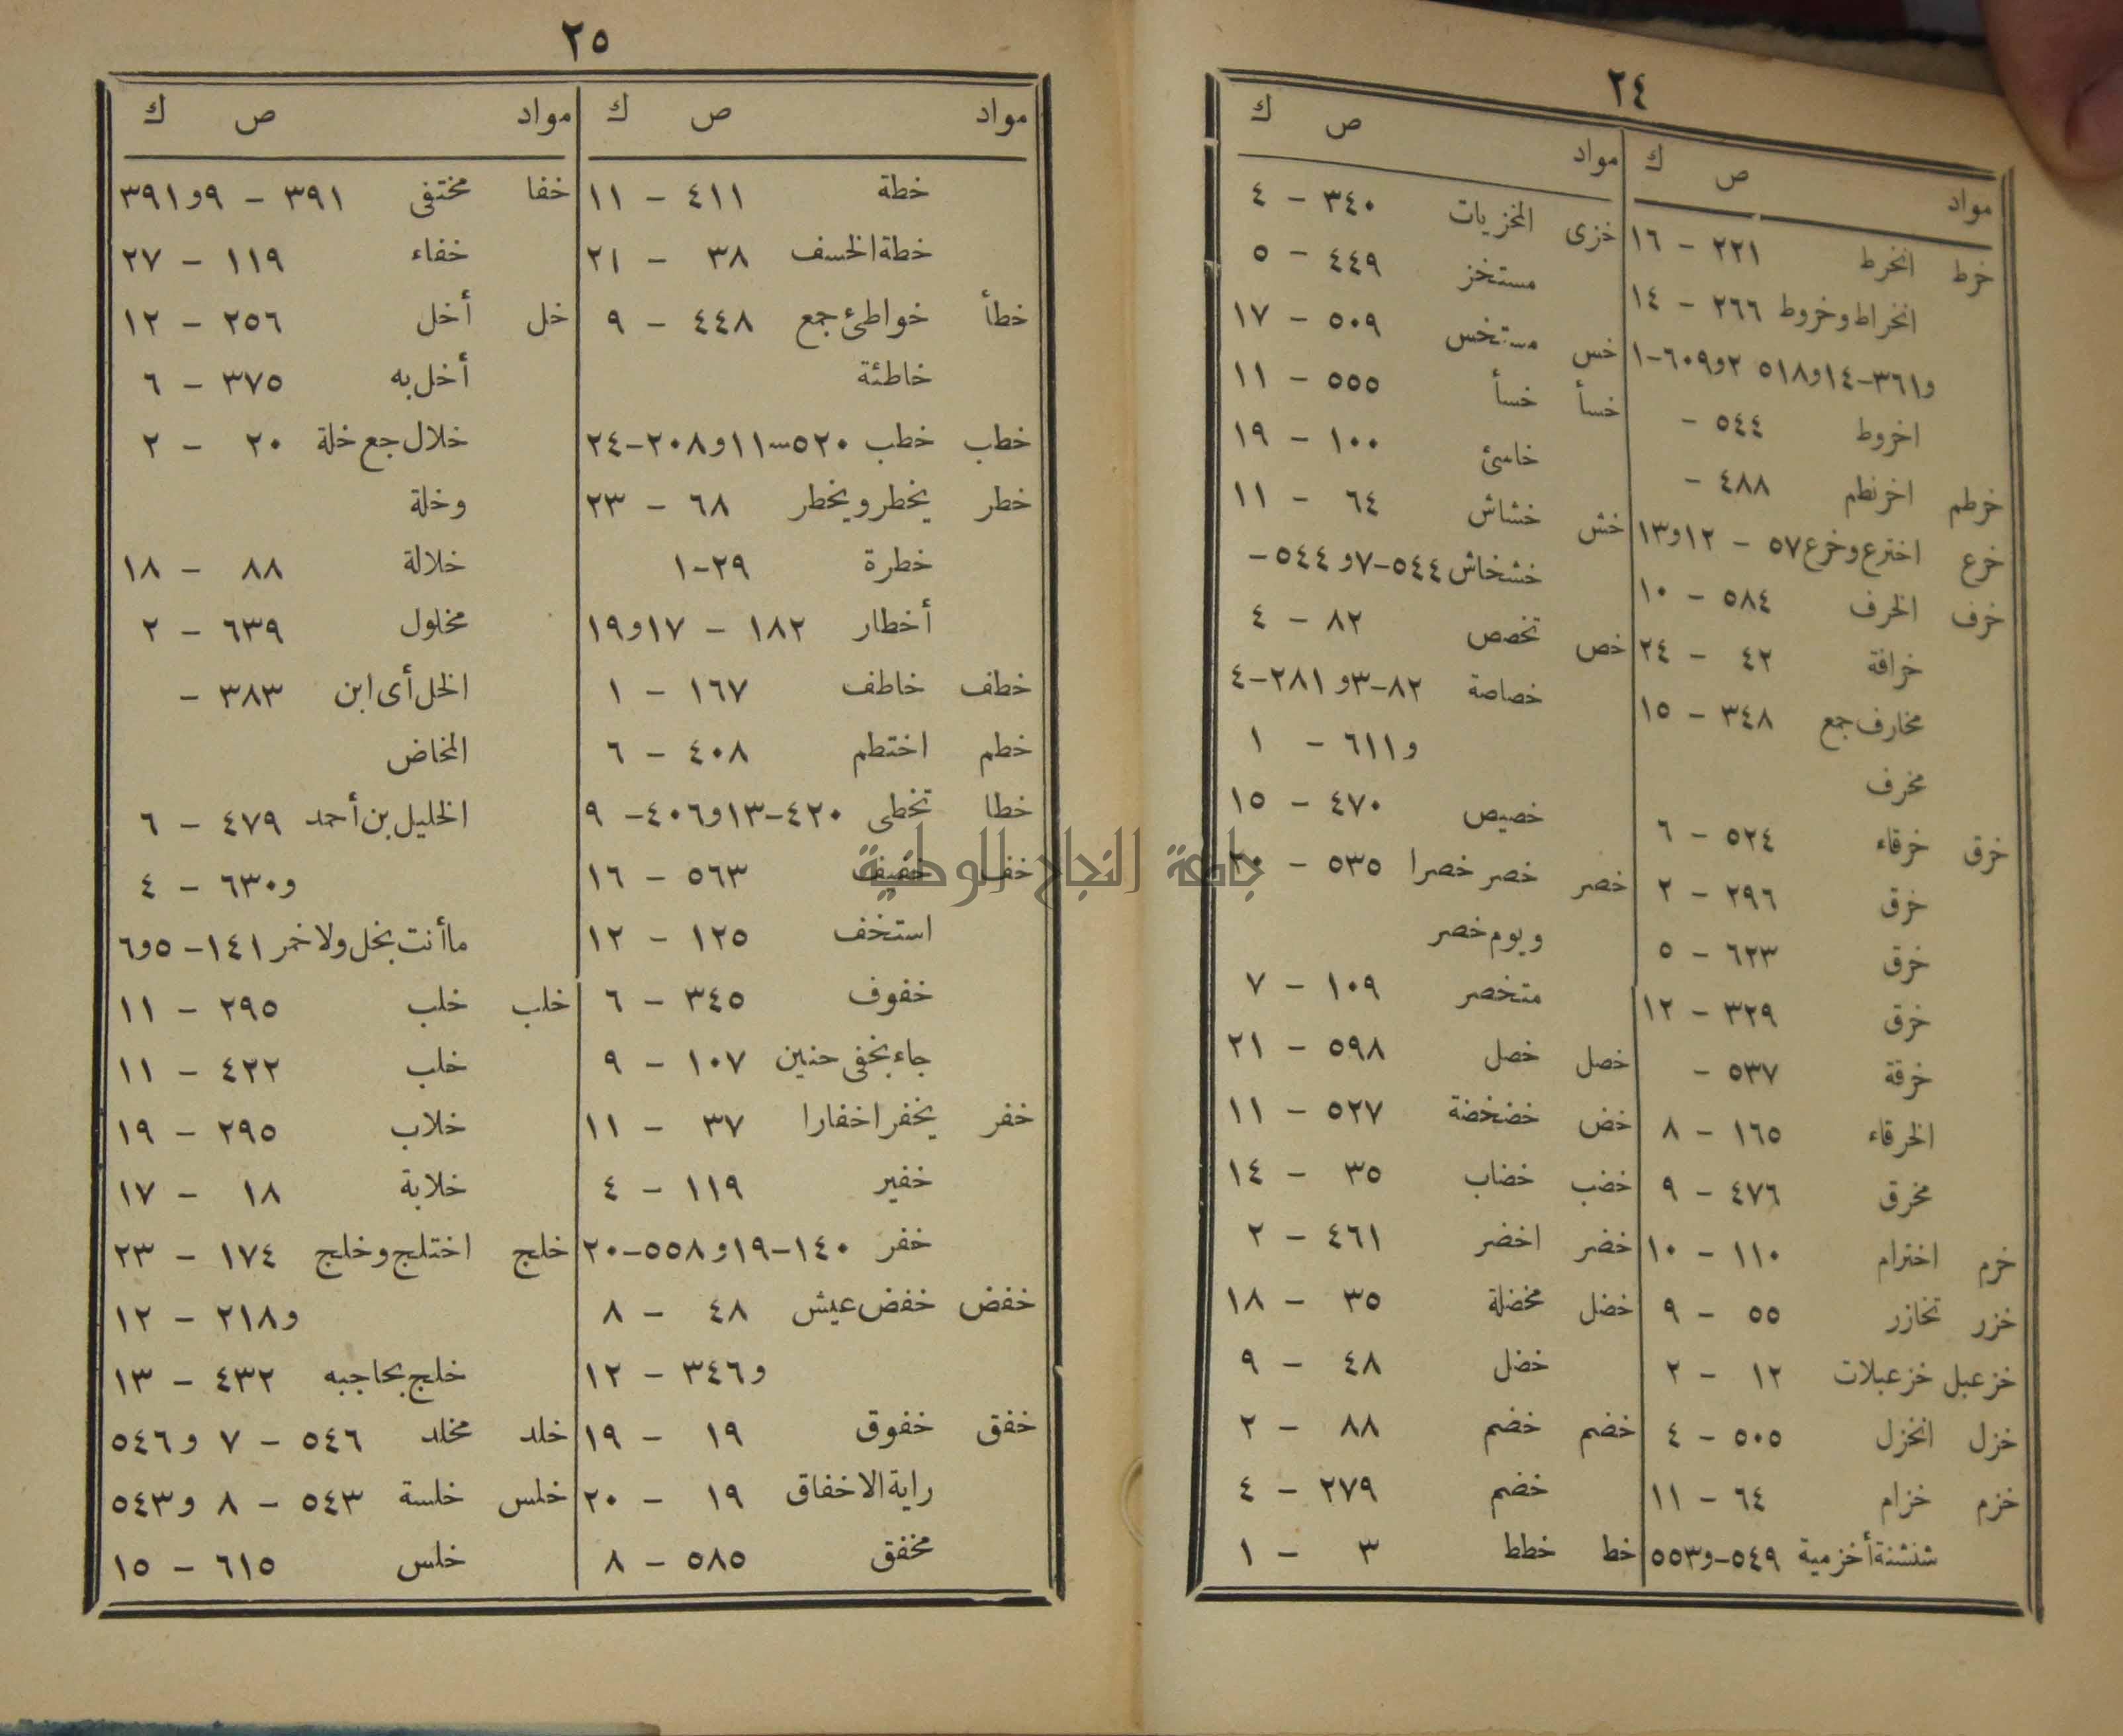 ٢٤
مواد ص ك
خرط انخرط ٢٢١ - ١٦
انخراط وخروط ٢٦٦ - ١٤
و٣٦١-١٤و٥١٨ ٢و٦٠٩-١
اخروط ٥٤٤ -
خرطم اخرنطم ٤٨٨ -
خرع اخترع وخرع ٥٧ - ١٢و١٣
خرف الخرف ٥٨٤ - ١٠
خرافة ٤٢ - ٢٤
مخارف جمع ٣٤٨ - ١٥
مخرف
خرق خرقاء ٥٢٤ - ٦
خرق ٢٩٦ - ٢
خرق ٦٢٣ - ٥
خرق ٣٢٩ - ١٢
خرقة ٥٣٧ -
الخرقاء ١٦٥ - ٨
مخرق ٤٧٦ - ٩
خرم اخترام ١١٠ - ١٠
خزر تخازر ٥٥ - ٩
خزعبل خزعبلات ١٢ - ٢
خزل انخزل ٥٠٥ - ٤
خزم خزام ٦٤ - ١١
شنشنة أخزمية ٥٤٩-و٥٥٣
مواد ص ك
خزى المخزيات ٣٤٠ - ٤
مستخز ٤٤٩ - ٥
خس مستخس ٥٠٩ - ١٧
خسأ خسأ ٥٥٥ - ١١
خاسئ ١٠٠ - ١٩
خش خشاش ٦٤ - ١١
خشخاش ٥٤٤-٧و٥٤٤-
خص تخصص ٨٢ - ٤
خصاصة ٨٢-٣و٢٨١-٤
و٦١١ - ١
خصيص ٤٧٠ - ١٥
خصر خصر خصرا ٥٣٥ - ٢٠
ويوم خصر
متخصر ١٠٩ - ٧
خصل خصل ٥٩٨ - ٢١
خض خضخضة ٥٢٧ - ١١
خضب خضاب ٣٥ - ١٤
خضر اخضر ٤٦١ - ٢
خضل مخضلة ٣٥ - ١٨
خضل ٤٨ - ٩
خضم خضم ٨٨ - ٢
خضم ٢٧٩ - ٤
خط خطط ٣ - ١
٢٥
مواد ص ك
خطة ٤١١ - ١١
خطة الخسف ٣٨ - ٢١
خطأ خواطئ جمع ٤٤٨ - ٩
خاطئة
خطب خطب ٥٢٠-١١و٢٠٨-٢٤
خطر يخطر ويخطر ٦٨ - ٢٣
خطرة ٢٩-١
أخطار ١٨٢ - ١٧و١٩
خطف خاطف ١٦٧ - ١
خطم اختطم ٤٠٨ - ٦
خطا تخطى ٤٢٠-١٣و٤٠٦- ٩
خف خفيف ٥٦٣ - ١٦
استخف ١٢٥ - ١٢
خفوف ٣٤٥ - ٦
جاء بخفى حنين ١٠٧ - ٩
خفر يخفر اخفارا ٣٧ - ١١
خفير ١١٩ - ٤
خفر ١٤٠-١٩و٥٥٨-٢٠
خفض خفض عيش ٤٨ - ٨
و٣٤٦ - ١٢
خفق خفوق ١٩ - ١٩
راية الاخفاق ١٩ - ٢٠
مخفق ٥٨٥ - ٨
مواد ص ك
خفا مختفى ٣٩١ - ٩و٣٩١
خفاء ١١٩ - ٢٧
خل أخل ٢٥٦ - ١٢
أخل به ٣٧٥ - ٦
خلال جمع خلة ٢٠ - ٢
وخلة
خلالة ٨٨ - ١٨
مخلول ٦٣٩ - ٢
الخل أى ابن ٣٨٣ -
المخاض
الخليل بن أحمد ٤٧٩ - ٦
و٦٣٠ - ٤
ما أنت بخل ولا خمر ١٤١- ٥و٦
خلب خلب ٢٩٥ - ١١
خلب ٤٢٢ - ١١
خلاب ٢٩٥ - ١٩
خلابة ١٨ - ١٧
خلج اختلج وخلج ١٧٤ - ٢٣
و٢١٨ - ١٢
خلج بحاجبه ٤٣٢ - ١٣
خلد مخلد ٥٤٦ - ٧ و٥٤٦
خلس خلسة ٥٤٣ - ٨ و٥٤٣
خلس ٦١٥ - ١٥
جامعة النجاح الوطنية